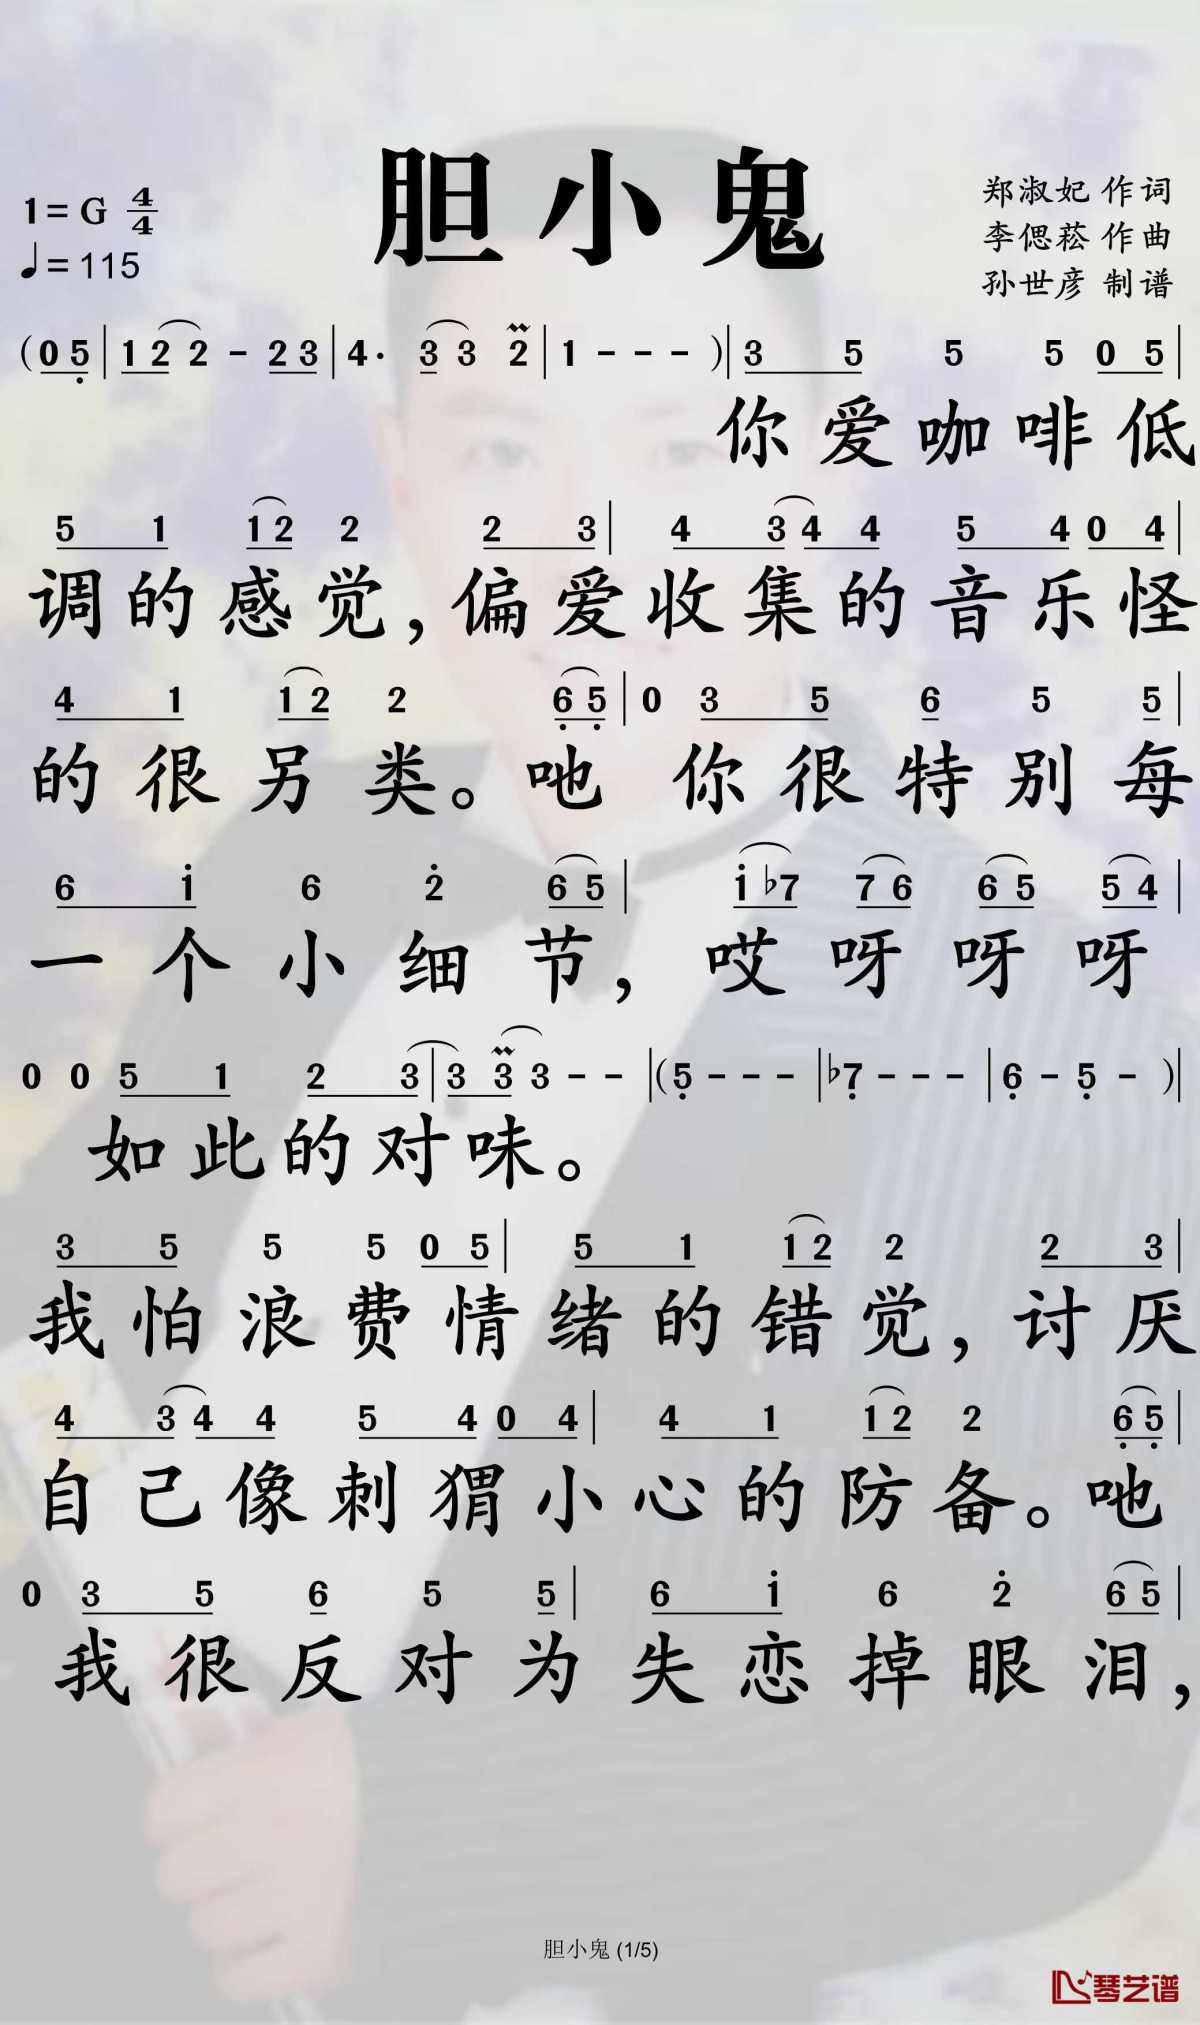 胆小鬼
1=G 4/4
♩=115
郑淑妃 作词
李偲菘 作曲
孙世彦 制谱
(0 5 | 1 2 2 - 2 3 | 4· 3 3 2 | 1 - - - ) | 3 5 5 5 0 5 |
你爱咖啡低
5 1 1 2 2 2 3 | 4 3 4 4 5 4 0 4 |
调的感觉,偏爱收集的音乐怪
4 1 1 2 2 6 5 | 0 3 5 6 5 5 |
的很另类。吔 你很特别每
6 1 6 2 6 5 | 1 ♭7 7 6 6 5 5 4 |
一个小细节,哎呀呀呀
0 0 5 1 2 3 | 3 3 3 - - | (5 - - - | ♭7 - - - | 6 - 5 - ) |
如此的对味。
3 5 5 5 0 5 | 5 1 1 2 2 2 3 |
我怕浪费情绪的错觉,讨厌
4 3 4 4 5 4 0 4 | 4 1 1 2 2 6 5 |
自己像刺猬小心的防备。吔
0 3 5 6 5 5 | 6 1 6 2 6 5 |
我很反对为失恋掉眼泪,
胆小鬼 (1/5)
琴艺谱